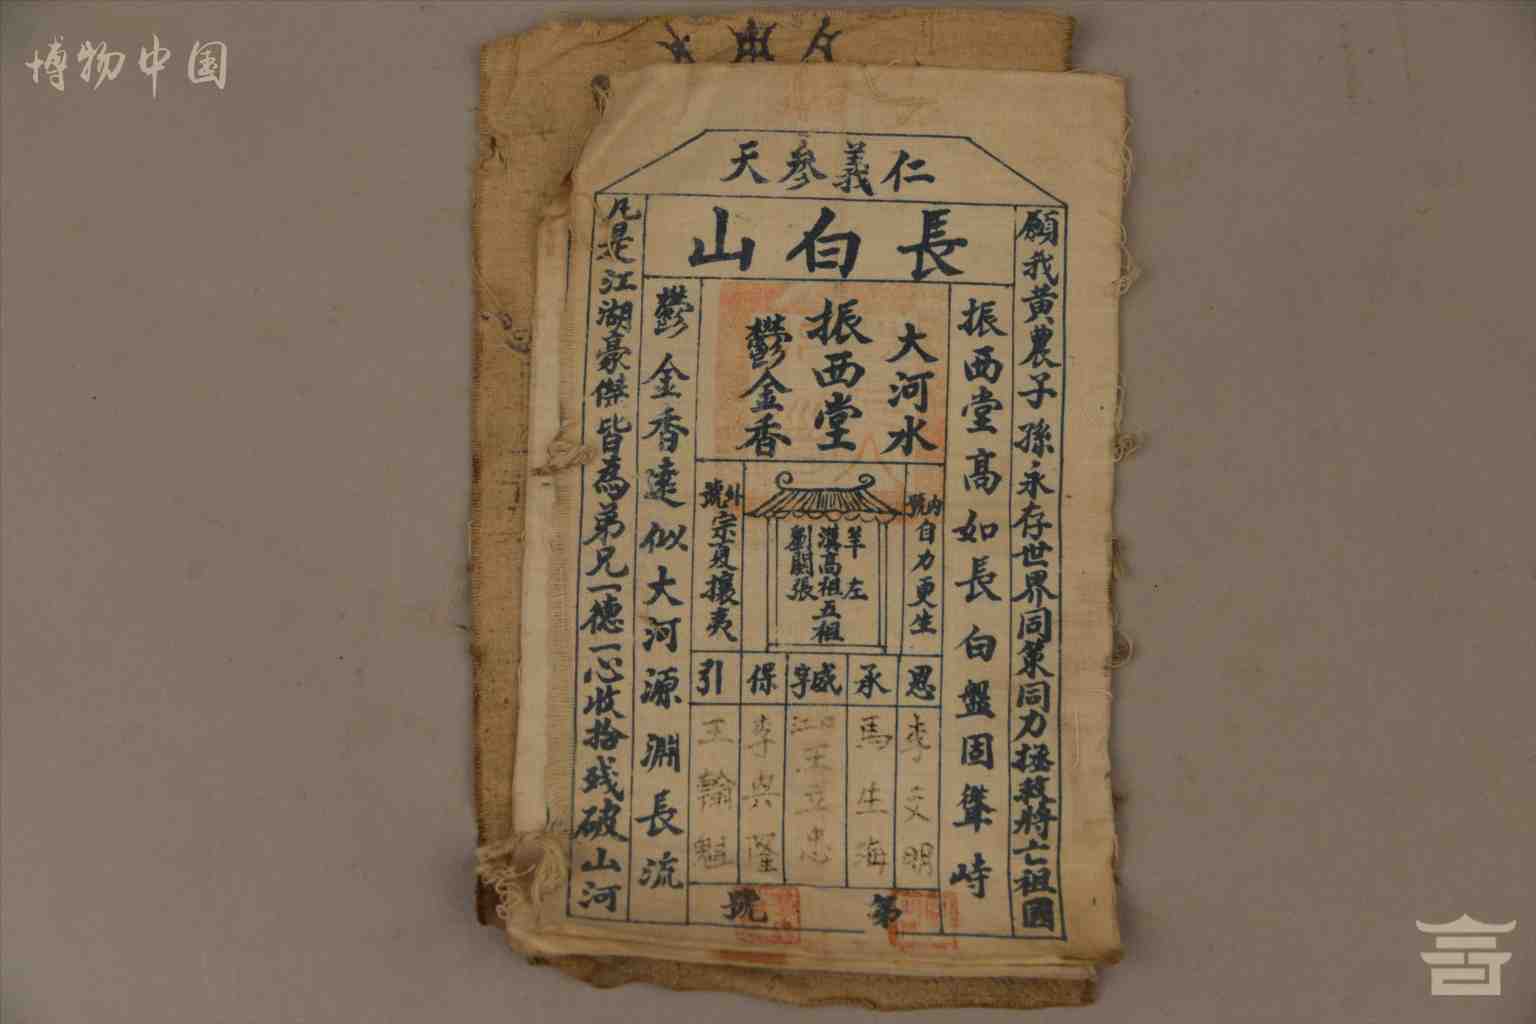 博物中国
仁義參天
長白山
願我黃農子孫永存世界同策同力拯救將亡祖國
振西堂高如長白盤固聳峙
大河水
振西堂
鬱金香
鬱金香遠似大河源淵長流
凡是江湖豪傑皆為弟兄一德一心收拾残破山河
內號自力更生
羊左
漢高祖五祖
劉關張
外號宗夏攘夷
恩 李文明
承 馬生海
江口王立忠
保 李興隆
引 王翰魁
第 號